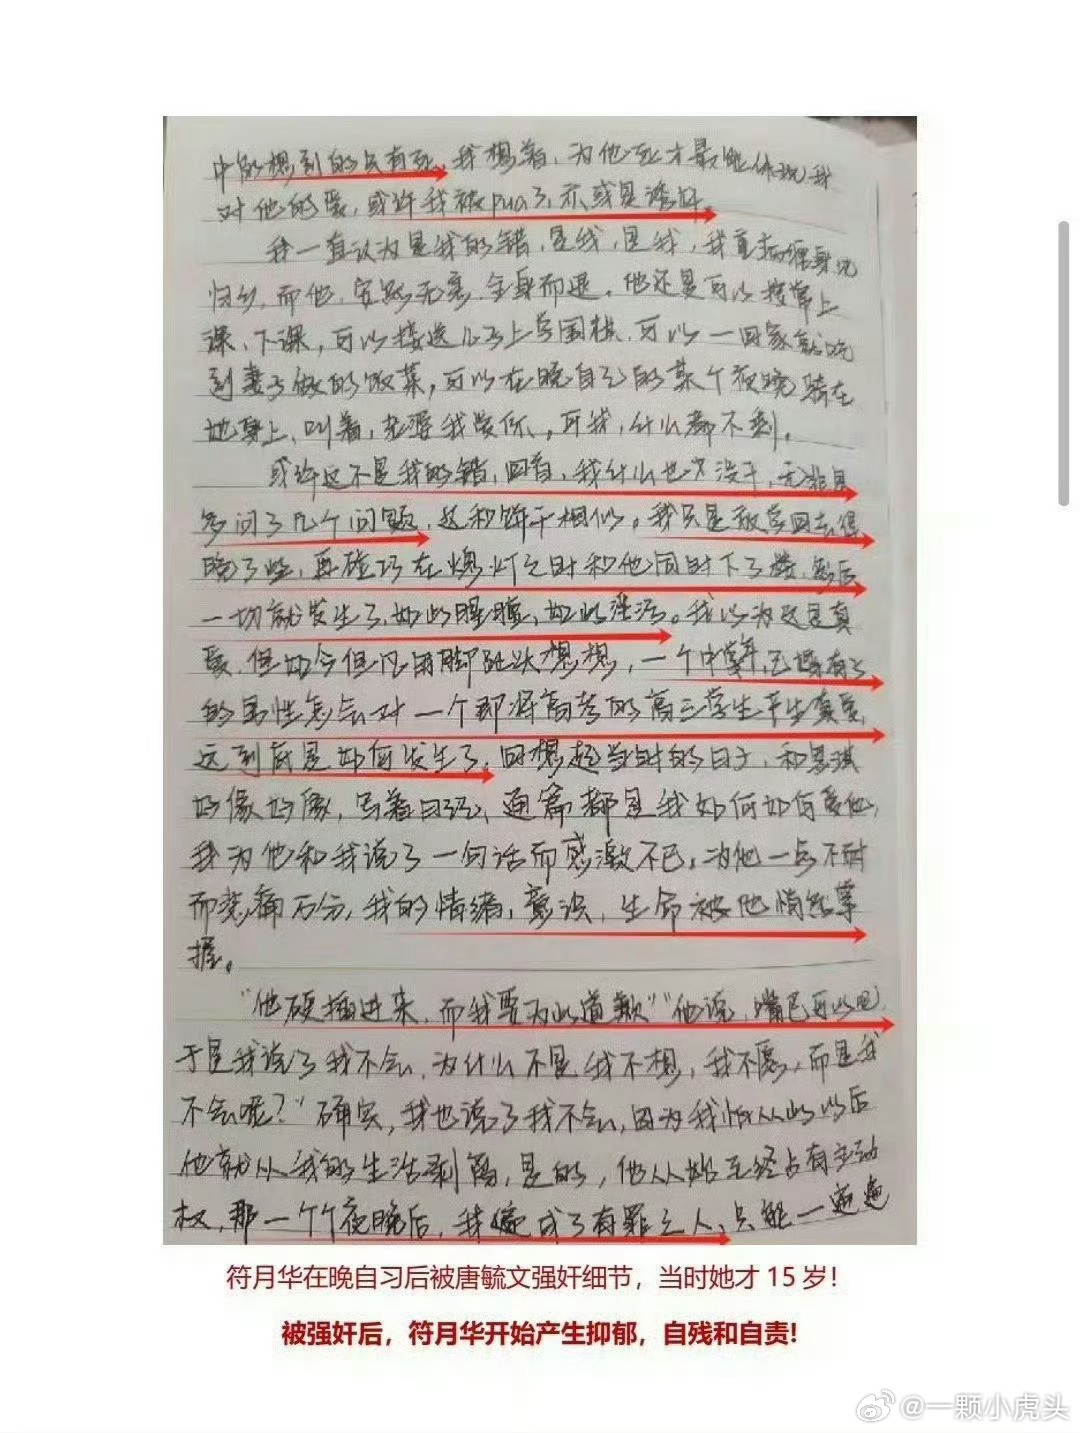 中能想到的只有死。我想着，为他死才最能体现我
对他的爱，或许我被pua了，亦或是诱奸。
我一直认为是我的错，是我，是我，我重病缠身
归乡，而他，安然无恙，全身而退。他还是可以接常上
课、下课，可以接送儿子上学围棋，可以一回家就吃
到妻子做的饭菜，可以在晚自习的某个夜晚骑在
她身上，叫着，我，什么都不剩。
或许这不是我的错，回首，我什么也没干，无非是
多问了几个问题，这和饼干相似。我只是放学回去得
晚了些，再碰巧在熄灯之时和他同时下了楼，然后
一切就发生了，如此，如此。我以为这是真
爱，但如今但凡用脚趾头想想，一个中年，已婚有子
的男性怎会对一个即将高考的高三学生产生真爱，
这到底是如何发生了。回想起当时的日子，和思琪
好像好像，写着日记，通篇都是我如何如何爱他，
我为他和我说了一句话而感激不已，为他一点不耐
而悲痛万分，我的情绪，意识，生命被他悄然掌
握。
“他硬插进来，而我要为此道歉”“他说，嘴巴可以吧
于是我说了我不会，为什么不是我不想，我不愿，而是我
不会呢？”确实，我也说了我不会，因为我怕从此以后
他就从我的生活剥离，是的，他从始至终占有主动
权，那一个个夜晚后，我变成了有罪之人，只能一遍遍
符月华在晚自习后被唐毓文强奸细节，当时她才 15 岁！
被强奸后，符月华开始产生抑郁，自残和自责!
@一颗小虎头